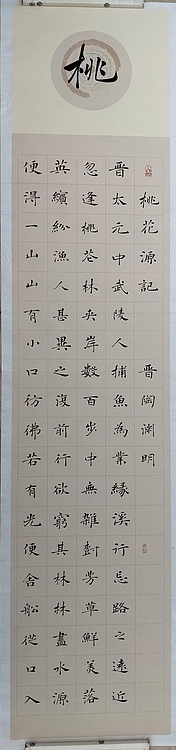 桃
桃花源記 晋陶渊明
晋太元中武陵人捕魚為業緣溪行忘路之遠近
忽逢桃花林夾岸數百步中無雜樹芳草鮮美落
英繽紛漁人甚異之復前行欲窮其林林盡水源
便得一山山有小口彷彿若有光便舍船從口入